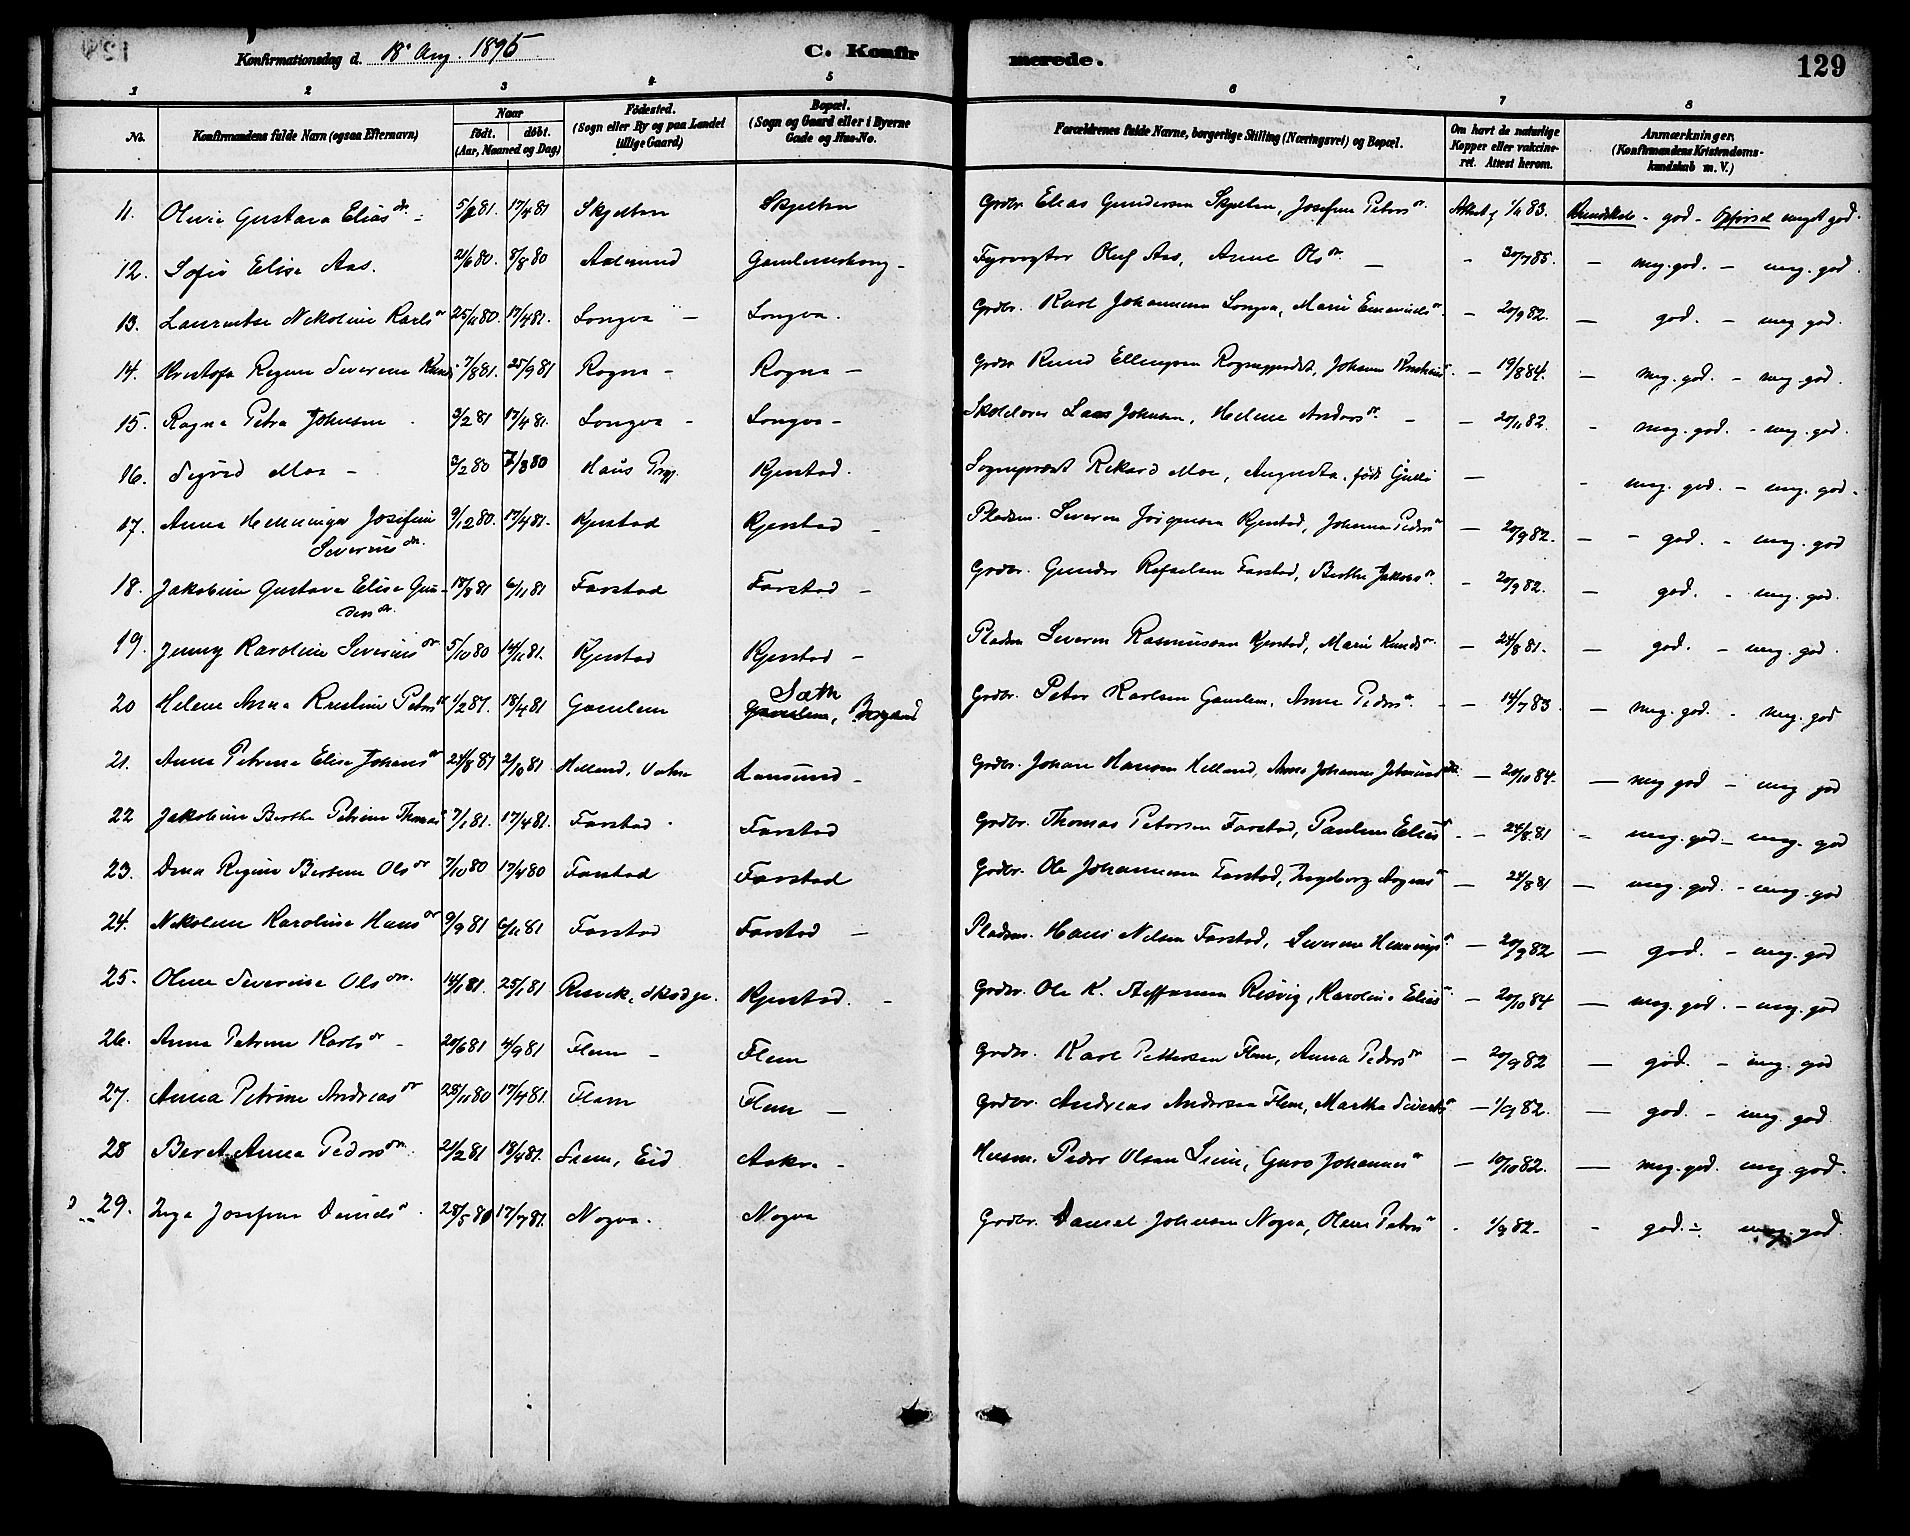 Konfirmationsdag d. 18 Aug. 1895 C. Konfirmerede. 129
1 2 3 4 5 6 7 8
No. Konfirmandens fulde Navn (ogsaa Efternavn) Naar født. døbt. (Aar, Maaned og Dag) Fødested. (Sogn eller By og paa Landet tillige Gaard) Bopæl. (Sogn og Gaard eller i Byerne Gade og Hus-No. Forældrenes fulde Navne, borgerlige Stilling (Næringsvei) og Bopæl. Om havt de naturlige Kopper eller vakcineret. Attest herom. Anmærkninger. (Konfirmandens Kristendomskundskab m. V.)
11. Olivie Gustava Eliasdr. 5/2 81. 17/4 81 Skjelten Skjelten Grdbr. Elias Gundersen Skjelten, Josefine Petersdr. Attest af 1/11 83. Kundskab - god - Opførsel meget god.
12. Sofie Elise Aas. 21/6 80. 8/8 80 Aalesund Gamlemshaug - Fyrvogter Oluf Aas, Anne Olsdr. - 20/7 85. - meg. god. - meg. god.
13. Laurentse Nikoline Karlsdr 25/11 80. 17/4 81. Longva - Longva. Grdbr. Karl Johannesen Longva, Marie - 20/9 82. - god. - meg god.
14. Kristofa Regine Severine Knuds 7/8 81. 25/9 81 Rogne - Rogne - Grdbr Knud Ellingsen Johanne - 19/8 84. - meg. god. - meg god.
15. Ragna Petra Johnsen 3/2 81 17/4 81. Longva - Longva - Skolelærer Lars Johnsen, Helene Andersdr. - - 20/11 82. - meg. god. - meg. god.
16. Sigrid Moe - 3/2 80 7/3 80 Haus Prgj. Kjerstad. Sogneprest Rikard Moe, Augusta, født - - meg. god. - meg. god.
17. Anna Henninga Josefine Severinsdr. 9/12 80. 17/4 81. Kjerstad Kjerstad - Pladsm. Severin Jørgensen Kjerstad, Johanne Pedersdr - 20/9 82. - - god. - meg. god
18. Jakobine Gustava Elise Gundersdr. 18/8 81 6/11 81 Farstad Farstad - Grdbr. Gunder Rafaelsen Farstad, Berthe Jakobsdr. - 20/9 82. - god. - meg. god.
19. Jenny Karoline Severinsdr 5/10 80 14/11 81. Kjerstad Kjerstad - Pladsm Severin Rasmussen Kjerstad, Marie Knudsdr. - 24/8 81. - god. - meg. god.
20 Helene Anna Kristine Petersdr 1/2 81. 18/4 81 Gamlem Sæth Gamlem, Borgund Grdbr. Peter Karlsen Gamlem, Anne Pedersdr. - - 14/7 83 - meg. god. - meg. god
21. Anna Petrine Elise Johansdr 24/8 81 2/10 81 Helland, Vatne - Grdbr. Johan Hansen Helland, Anne Johanne - 20/10 84. - meg god - meg god
22 Jakobine Berthe Petrine Thomasdr 7/1 81. 17/4 81. Farstad. Farstad Grdbr. Thomas Petersen Farstad, Pauline Eliasdr. - 24/8 81 - meg. god - meg. god
23. Dina Regine Bertine Olsdr 7/10 80 17/4 80 Farstad Farstad Grdbr. Ole Johannesen Farstad, Ingeborg - 24/8 81 - meg. god. - meg. god
24. Nikoline Karoline Hansdr 9/9 81 6/11 81 Farstad Farstad - Pladsm. Hans Nilsen Farstad, Severine - 20/9 82 - god. - meg. god
25. Oline Severine Olsdr. 14/1 81. 23/1 81 Resvik, Skodje. Kjerstad. - Grdbr. Ole K. Steffansen Risvig, Karoline Eliasdr. - 20/10 84 - meg. god. - meg. god
26. Anna Petrine Karlsdr - 20/6 81 4/9 81 Flem - Flem Grdbr. Karl Pettersen Flem, Anna Pedersdr - 20/9 82 - god. - meg. god
27. Anna Petrine Andreasdr 28/11 80 17/4 81. Flem Flem - Grdbr. Andreas Andersen Flem, Martha Sivertsdr - 1/9 82. - god. - meg. god.
28 Beret Anna Pedersdr. 21/2 81 18/4 81. Liem, Eid Aakre - Husm. Peder Olsen Liem, Guro Johannesdr - 10/10 82. - meg. god. meg. god.
29. Inga Josefine Danielsdr. 28/5 81 17/7 81. Nogva. Nogva Grdbr. Daniel Johnsen Nogva, Oline Petersdr - 1/9 82. - god. - meg. god.